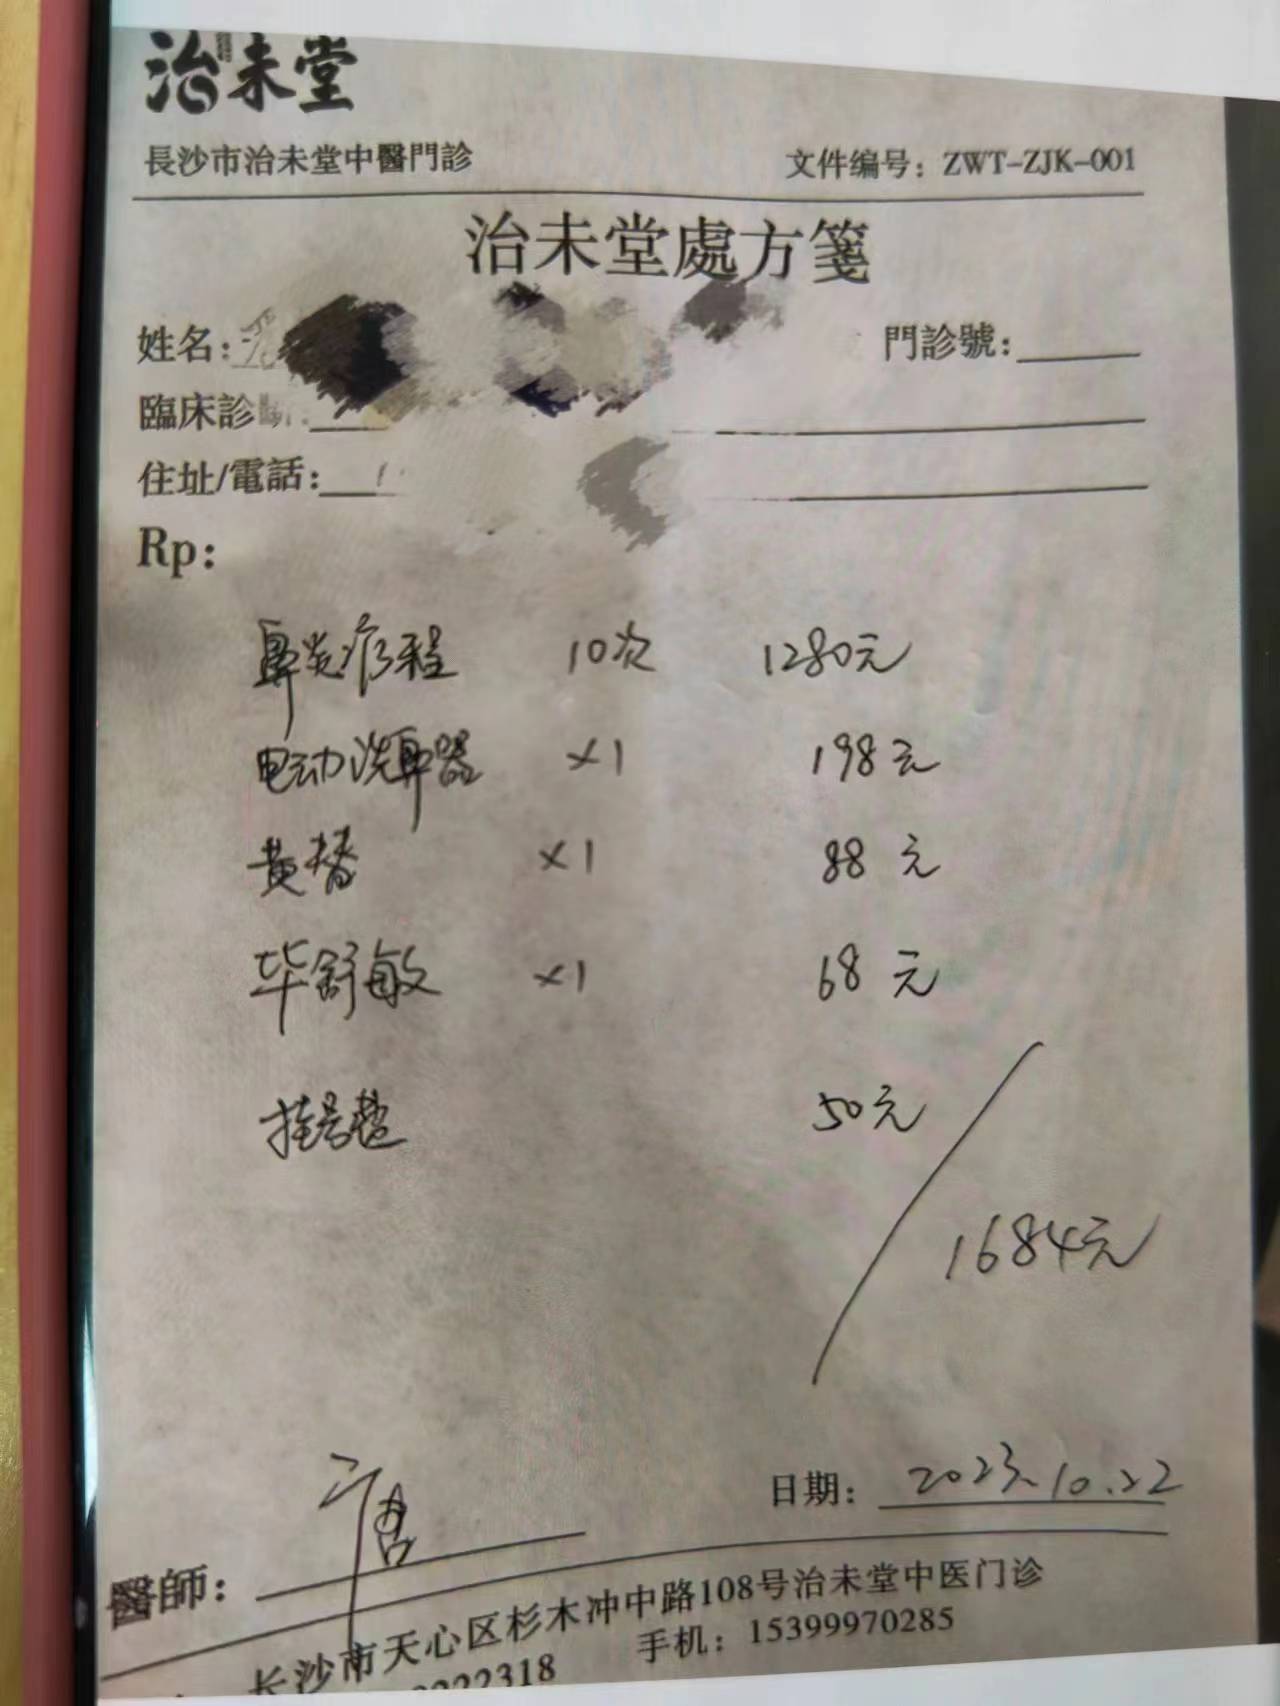 治未堂
長沙市治未堂中醫門診 文件编号：ZWT-ZJK-001
治未堂處方箋
姓名： 門診號：
臨床診斷：
住址/電話：
Rp：
鼻炎疗程 10次 1280元
电动洗鼻器 ×1 198元
黄替 ×1 88元
毕舒敏 ×1 68元
挂号费 50元
1684元
日期： 2023.10.22
醫師：
长沙市天心区杉木冲中路108号治未堂中医门诊
2222318 手机：15399970285